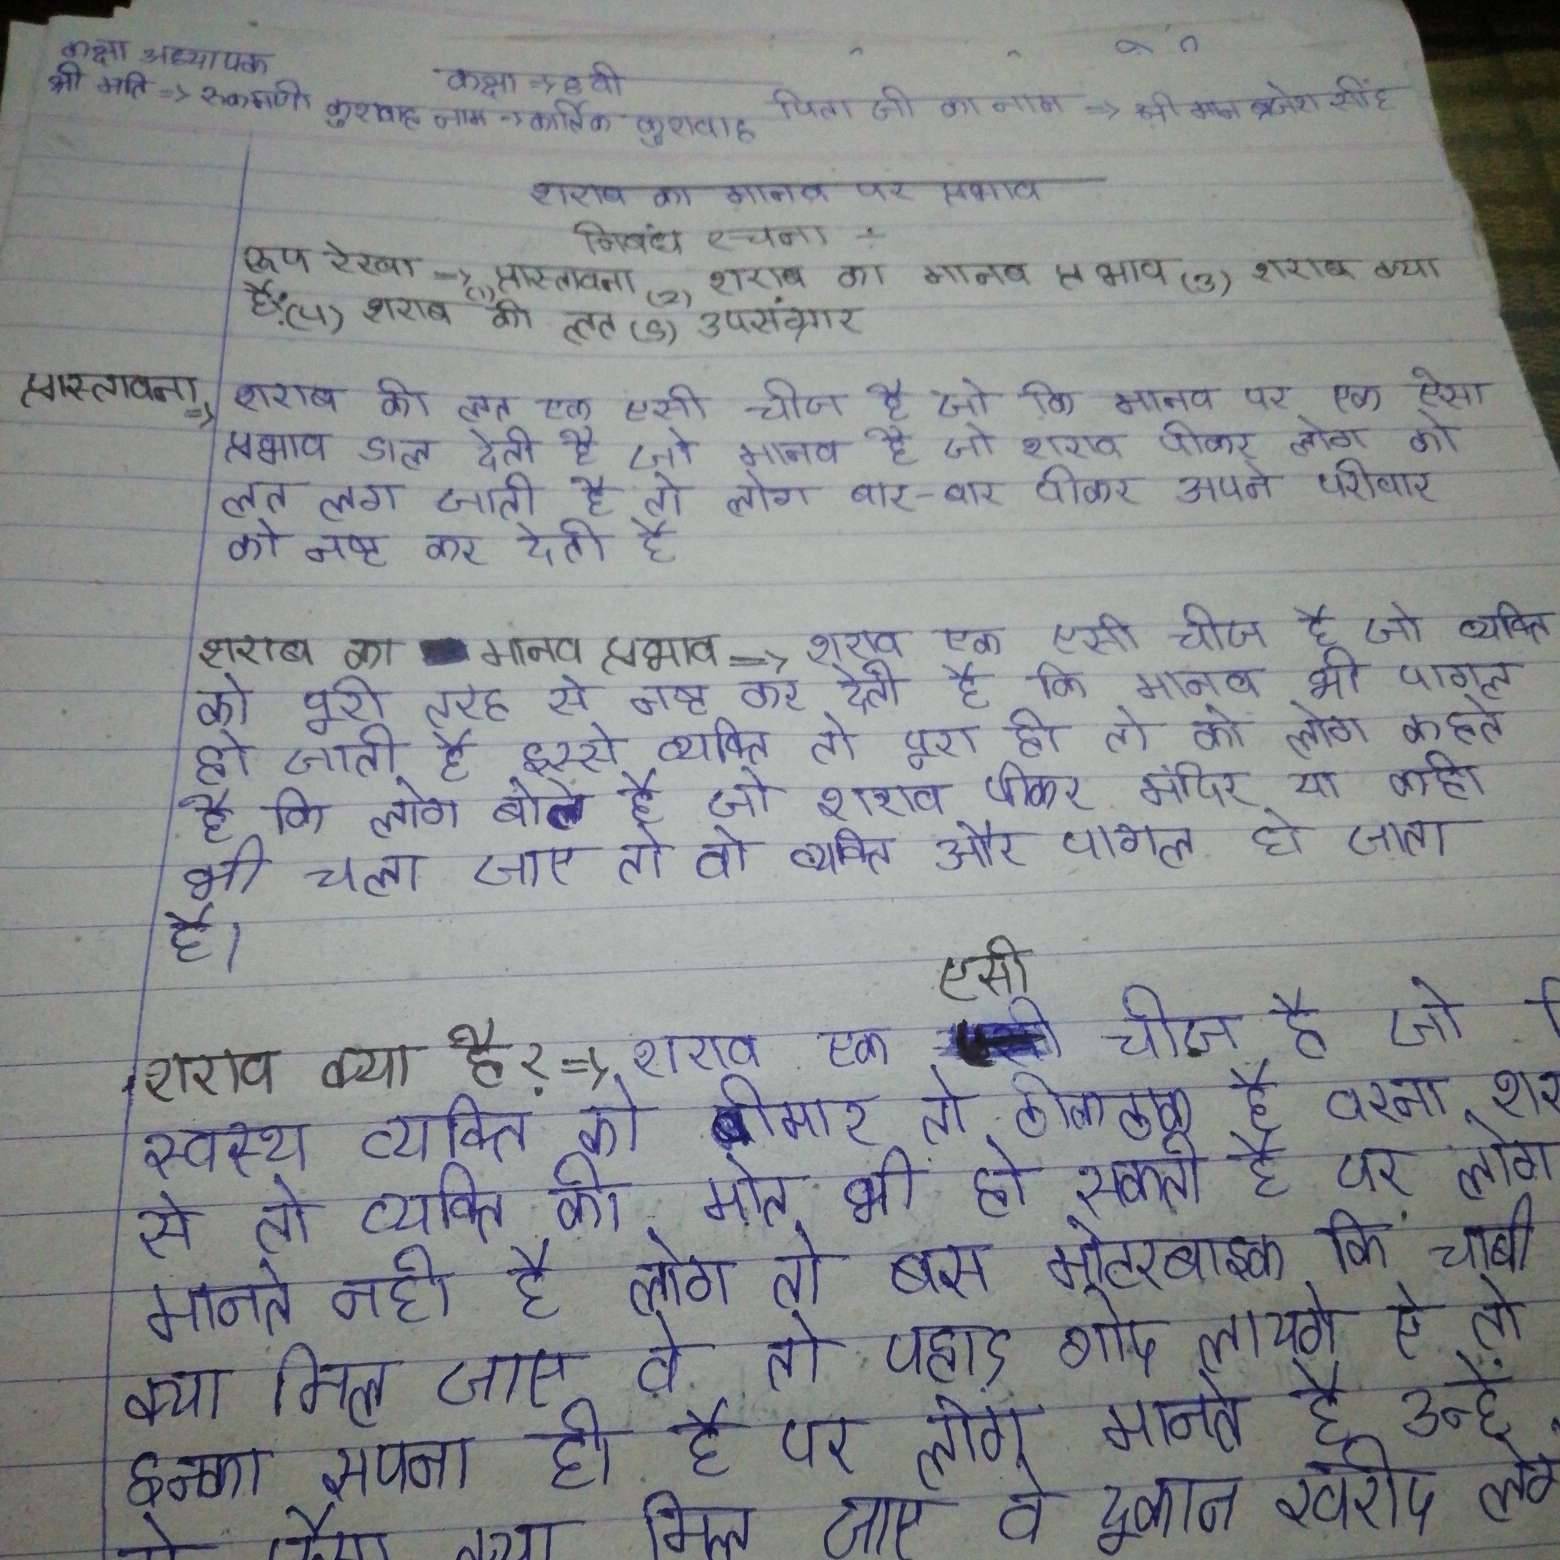 कक्षा अध्यापक
श्री मति => रुकमणी कुशवाह
कक्षा => 8वी
नाम => कार्तिक कुशवाह
पिता जी का नाम => श्री मान ब्रजेश सींह
शराब का मानव पर प्रभाव
निबंध रचना ÷
रूप रेखा => (1) प्रास्तावना (2) शराब का मानव प्रभाव (3) शराब क्या
है? (4) शराब की लत (5) उपसंहार
प्रास्तावना => शराब की लत एक एसी चीज है जो कि मानव पर एक ऐसा
प्रभाव डाल देती है जो मानव है जो शराव पीकर लोग को
लत लग जाती है तो लोग बार-बार पीकर अपने परीवार
को नष्ट कर देती है
शराब का मानव प्रभाव => शराव एक एसी चीज है जो व्यक्ति
को पूरी तरह से नष्ट कर देती है कि मानव भी पागल
हो जाती है इससे व्यक्ति तो पूरा ही तो को लोग कहते
है कि लोग बोले है जो शराव पीकर मंदिर या कही
भी चला जाए तो वो व्यक्ति और पागल हो जाता
है।
एसी
शराव क्या है? => शराव एक चीज है जो
स्वस्थ व्यक्ति को बीमार तो ठीकठाक है वरना
से तो व्यक्ति की मोत भी हो सकती है पर लोग
मानते नही है लोग तो बस मोटरबाइक कि चाबी
क्या मिल जाए वे तो पहाड़ गोद लायगे ऐ तो
इनका सपना ही है पर लोग मानते है उन्हें
क्या मिल जाए वे दूकान खरीद